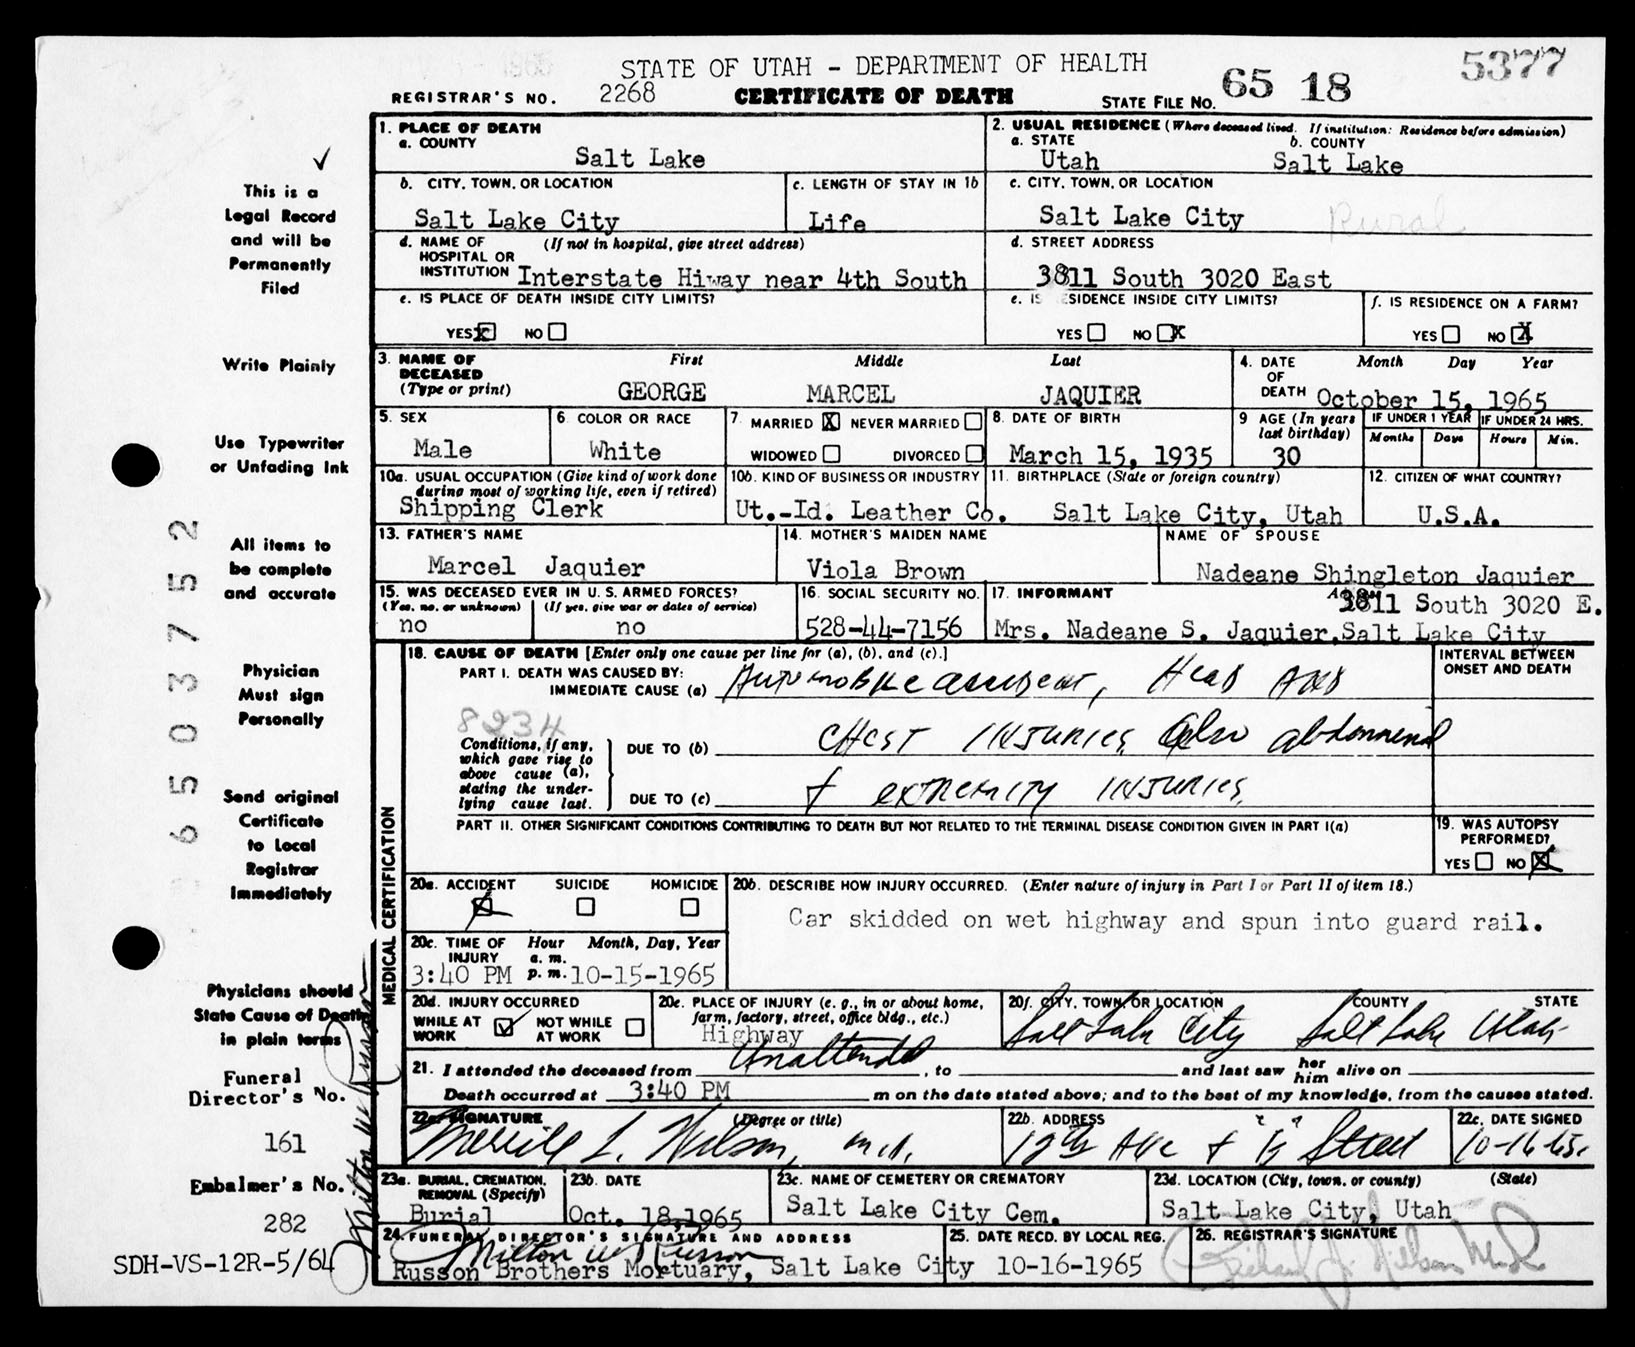 5377
STATE OF UTAH - DEPARTMENT OF HEALTH
REGISTRAR'S NO. 2268 CERTIFICATE OF DEATH STATE FILE NO. 65 18
1. PLACE OF DEATH
a. COUNTY
Salt Lake
2. USUAL RESIDENCE (Where deceased lived. If institution: Residence before admission)
a. STATE b. COUNTY
Utah Salt Lake
b. CITY, TOWN, OR LOCATION
Salt Lake City
c. LENGTH OF STAY IN 1b
Life
c. CITY, TOWN, OR LOCATION
Salt Lake City Rural
d. NAME OF (If not in hospital, give street address)
HOSPITAL OR
INSTITUTION Interstate Hiway near 4th South
d. STREET ADDRESS
3811 South 3020 East
e. IS PLACE OF DEATH INSIDE CITY LIMITS?
YES X NO
e. IS RESIDENCE INSIDE CITY LIMITS?
YES NO X
f. IS RESIDENCE ON A FARM?
YES NO X
3. NAME OF DECEASED First Middle Last
(Type or print) GEORGE MARCEL JAQUIER
4. DATE OF DEATH Month Day Year
October 15, 1965
5. SEX
Male
6. COLOR OR RACE
White
7. MARRIED X NEVER MARRIED
WIDOWED DIVORCED
8. DATE OF BIRTH
March 15, 1935
9 AGE (In years last birthday)
30
IF UNDER 1 YEAR IF UNDER 24 HRS.
Months Days Hours Min.
10a. USUAL OCCUPATION (Give kind of work done
during most of working life, even if retired)
Shipping Clerk
10b. KIND OF BUSINESS OR INDUSTRY
Ut.-Id. Leather Co.
11. BIRTHPLACE (State or foreign country)
Salt Lake City, Utah
12. CITIZEN OF WHAT COUNTRY?
U.S.A.
13. FATHER'S NAME
Marcel Jaquier
14. MOTHER'S MAIDEN NAME
Viola Brown
NAME OF SPOUSE
Nadeane Shingleton Jaquier
15. WAS DECEASED EVER IN U.S. ARMED FORCES?
(Yes, no, or unknown) (If yes, give war or dates of service)
no no
16. SOCIAL SECURITY NO.
528-44-7156
17. INFORMANT
3811 South 3020 E.
Mrs. Nadeane S. Jaquier, Salt Lake City
18. CAUSE OF DEATH [Enter only one cause per line for (a), (b), and (c).]
INTERVAL BETWEEN
ONSET AND DEATH
PART I. DEATH WAS CAUSED BY:
IMMEDIATE CAUSE (a) Automobile accident, Head and
8234
Conditions, if any,
which gave rise to
above cause (a),
stating the under-
lying cause last.
DUE TO (b) chest injuries, also abdominal
DUE TO (c) + extremity injuries.
PART II. OTHER SIGNIFICANT CONDITIONS CONTRIBUTING TO DEATH BUT NOT RELATED TO THE TERMINAL DISEASE CONDITION GIVEN IN PART I(a)
19. WAS AUTOPSY
PERFORMED?
YES NO X
MEDICAL CERTIFICATION
20a. ACCIDENT SUICIDE HOMICIDE
X
20b. DESCRIBE HOW INJURY OCCURRED. (Enter nature of injury in Part I or Part II of item 18.)
Car skidded on wet highway and spun into guard rail.
20c. TIME OF INJURY Hour Month, Day, Year
a. m.
3:40 PM p. m. 10-15-1965
20d. INJURY OCCURRED
WHILE AT WORK ✓ NOT WHILE AT WORK
20e. PLACE OF INJURY (e. g., in or about home,
farm, factory, street, office bldg., etc.)
Highway
20f. CITY, TOWN, OR LOCATION COUNTY STATE
Salt Lake City Salt Lake Utah
21. I attended the deceased from Unattended, to and last saw her him alive on
Death occurred at 3:40 PM m on the date stated above; and to the best of my knowledge, from the causes stated.
22a. SIGNATURE (Degree or title)
Merrill L. Wilson, m.d.
22b. ADDRESS
12th Ave + "B" Street
22c. DATE SIGNED
10-16-65.
23a. BURIAL, CREMATION,
REMOVAL (Specify)
Burial
23b. DATE
Oct. 18, 1965
23c. NAME OF CEMETERY OR CREMATORY
Salt Lake City Cem.
23d. LOCATION (City, town, or county) (State)
Salt Lake City, Utah
24. FUNERAL DIRECTOR'S SIGNATURE AND ADDRESS
Milton W Russon
Russon Brothers Mortuary, Salt Lake City
25. DATE RECD. BY LOCAL REG.
10-16-1965
26. REGISTRAR'S SIGNATURE
✓
This is a
Legal Record
and will be
Permanently
Filed
Write Plainly
Use Typewriter
or Unfading Ink
All items to
be complete
and accurate
Physician
Must sign
Personally
Send original
Certificate
to Local
Registrar
Immediately
Physicians should
State Cause of Death
in plain terms
Funeral
Director's No.
161
Embalmer's No.
282
SDH-VS-12R-5/64
Milton W Russon
65037752